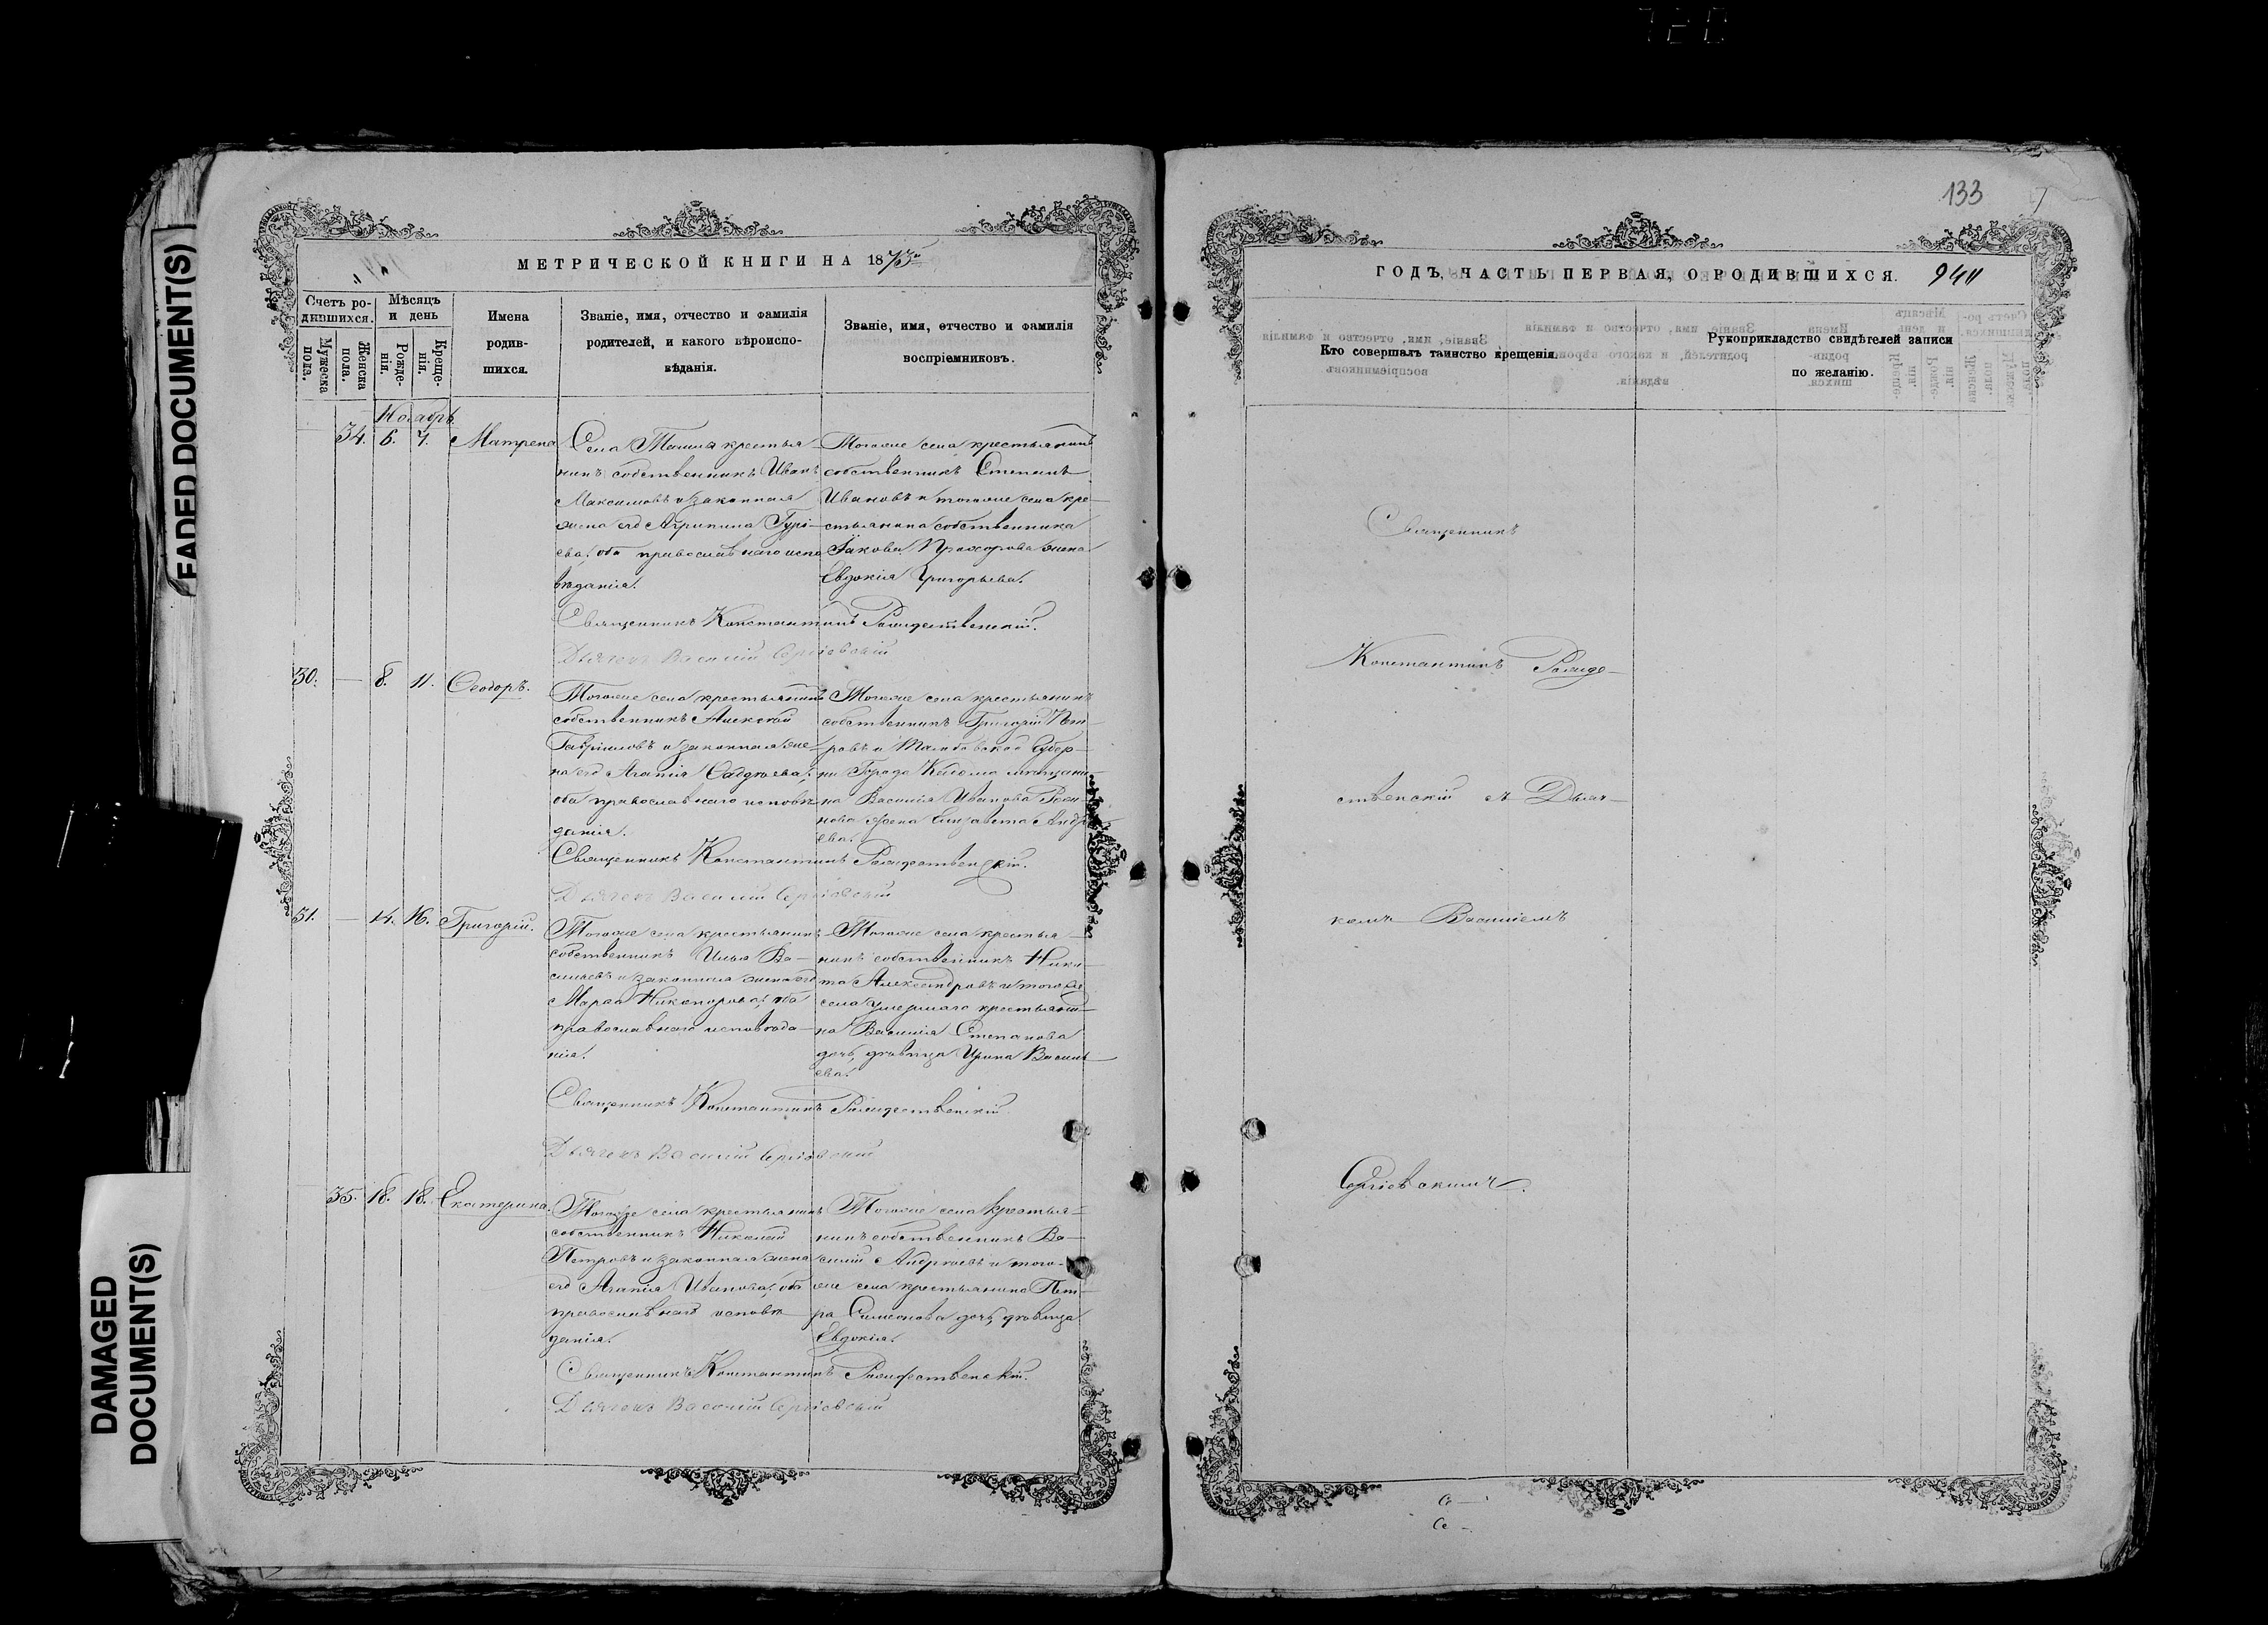 FADED DOCUMENT(S)
DAMAGED
DOCUMENT(S)
МЕТРИЧЕСКОЙ КНИГИ НА 1873й
Счетъ ро-
дившихся.
Мужеска
пола.
Женска
пола.
Мѣсяцъ
и день
Рожде-
нія.
Креще-
нія.
Имена
родив-
шихся.
Званіе, имя, отчество и фамилія
родителей, и какого вѣроиспо-
вѣданія.
Званіе, имя, отчество и фамилія
воспріемниковъ.
Ноябрь
34. 6. 7. Матрена
Села крестья
нинъ собственникъ Иванъ
Максимовъ и законная
жена его Агрипина Гурі-
ева, оба православнаго испо
вѣданія.
Тогоже села крестьянинъ
собственникъ Степанъ
Ивановъ и тогоже села кре-
стьянина собственника
Іакова Прохорова жена
Евдокія Григорьева.
Священникъ Константинъ Рождественскій.
Дьячекъ Василій Сергіевскій
30. — 8. 11. Ѳеодоръ.
Тогоже села крестьянинъ
собственникъ Алексѣй
Гавріиловъ и законная же-
на его Агапія
оба православнаго исповѣ
данія.
Тогоже села крестьянинъ
собственникъ Григорій Пет-
ровъ и Тамбовской Губер-
ніи Города мѣщани-
на Василія Иванова
жена Елизавета Андре
ева.
Священникъ Константинъ Рождественскій.
Дьячекъ Василій Сергіевскій
31. — 14. 16. Григорій.
Тогоже села крестьянинъ
собственникъ Илья Ва-
сильевъ и законная жена его
Марѳа Никанорова, оба
православнаго исповѣда-
нія.
Тогоже села крестья-
нинъ собственникъ Ники-
та Александровъ и тогоже
села умершаго крестьяни-
на Василія Степанова
дочь, дѣвица Ирина Василь
ева.
Священникъ Константинъ Рождественскій.
Дьячекъ Василій Сергіевскій
35. 18. 18. Екатерина.
Тогоже села крестьянинъ
собственникъ Николай
Петровъ и законная жена
его Агапія Иванова, оба
православнаго исповѣ
данія.
Тогоже села крестья-
нинъ собственникъ Ва-
силій Андреевъ и того-
же села крестьянина Пет-
ра Симеонова дочь, дѣвица
Евдокія.
Священникъ Константинъ Рождественскій.
Дьячекъ Василій Сергіевскій
133
ГОДЪ, ЧАСТЬ ПЕРВАЯ, О РОДИВШИХСЯ.
Кто совершалъ таинство крещенія.
Рукоприкладство свидѣтелей записи
по желанію.
Священникъ
Константинъ Рожде-
ственскій съ Дьяч-
комъ Василіемъ
Сергіевскимъ.